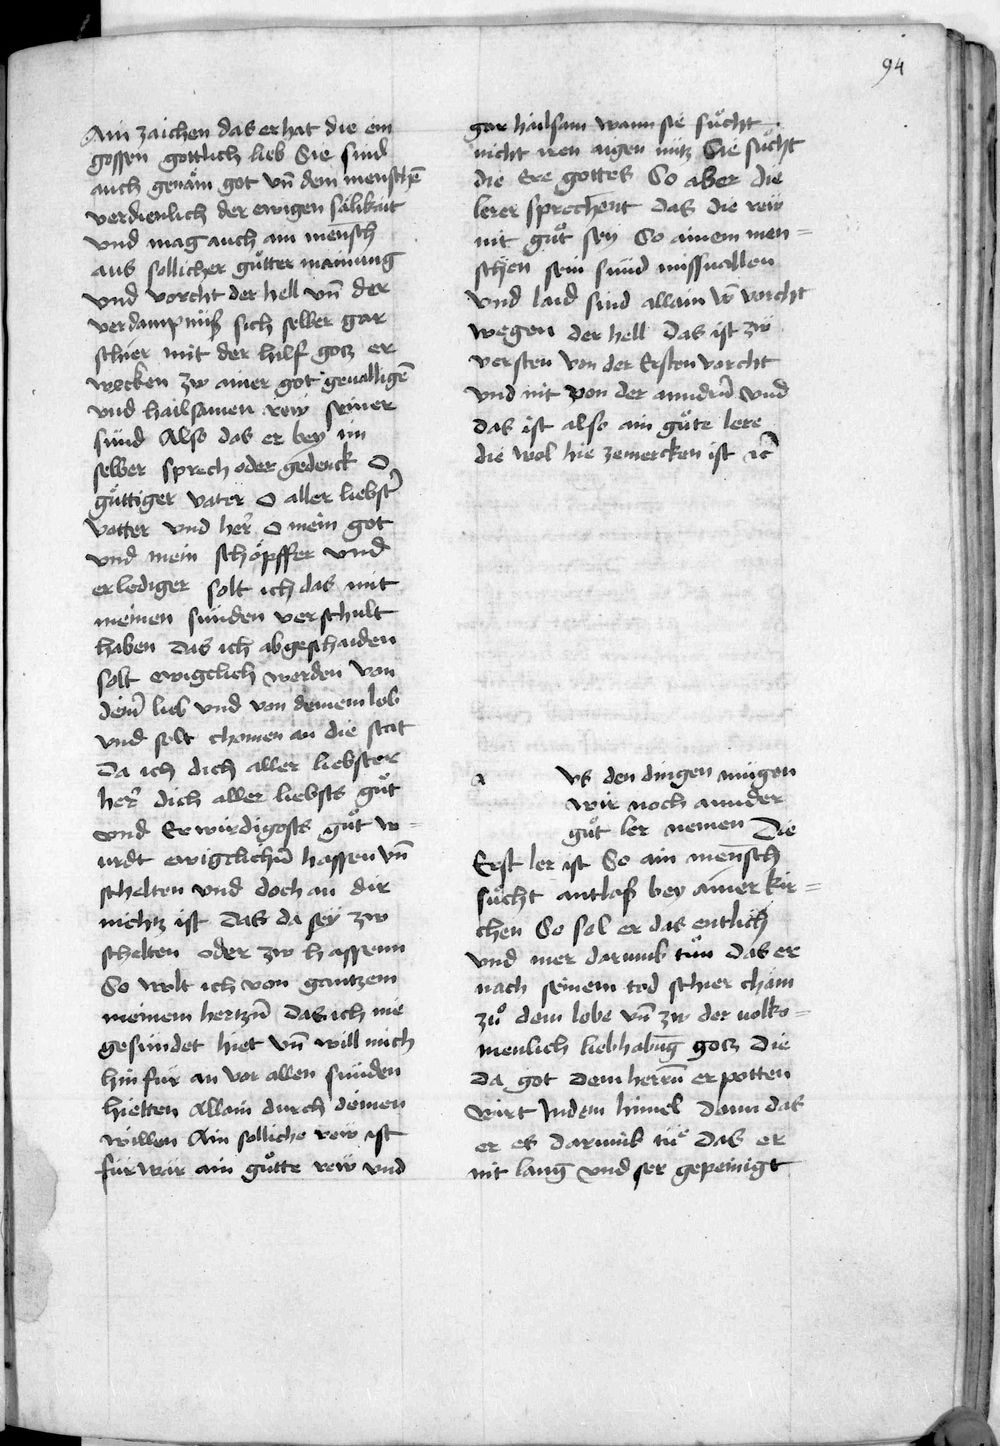 94
Ain zaichen das er hat die ein
gossen gottlich lieb Sie sind
auch genäm got vn̄ dem menschē
verdienlich der ewigen sälikait
vnd mag auch ain mensch
aus sollicher gůtter mainung
vnd vorcht der hell vn̄ der
verdampnüß sich selber gar
schier mit der hilf gotz er
wecken zw ainer got geualligē
vnd hailsamen rew seiner
sünd Also das er bey im
selber sprech oder gedenck O
gůttiger vater O aller liebst̄
vatter vnd her̄ O mein got
vnd mein schöpffer vnd
erlediger solt ich das mit
meinen sünden verschult
haben das ich abgeschaiden
solt ewigclich werden von
dein̄ lieb vnd von deinem lob
vnd solt chomen an die stat
Da ich dich aller liebster
her̄ dich aller liebsts gůt
vnd Erwirdigosts gůt w=
urdt ewigclichn̄ hassen vn̄
schelten vnd doch an dir
nichtz ist das da sey zw
schelten oder zw hassenn
So wolt ich von gantzem
meinem hertzn̄ das ich nie
gesündet hiet vn̄ will mich
hin für an vor allen sünden
hietten Allain durch deinen
willen Ain solliche rew ist
für war ain gůtte rew vnd
gar hailsam wann sie sůcht
nicht iren aigen nütz Sie sůcht
die Ere gottes So aber die
lerer sprechent das die rew
nit gůt sey So ainem men=
schen sein sünd missuallen
vnd laid sind allain vō vorcht
wegen der hell Das ist zw
versten von der Ersten vorcht
vnd nit von der anndrn̄ vnd
das ist also ain gůte lere
die wol hie zemercken ist ꝛc̄
a vs den dingen mügen
wir noch annder
gůt ler nemen Die
Erst ler ist So ain mensch
sůcht antlaß bey ainer kir=
chen So sol er das entlich
vnd mer darumb tůn das er
nach seinem tod schier cham
zů dem lobe vn̄ zw der uolko=
menlich liebhabūg gotz Die
da got dem herrn̄ erpotten
wirt Indem himel Denn das
er es darumb tüe das er
nit lang vnd ser gepeinigt